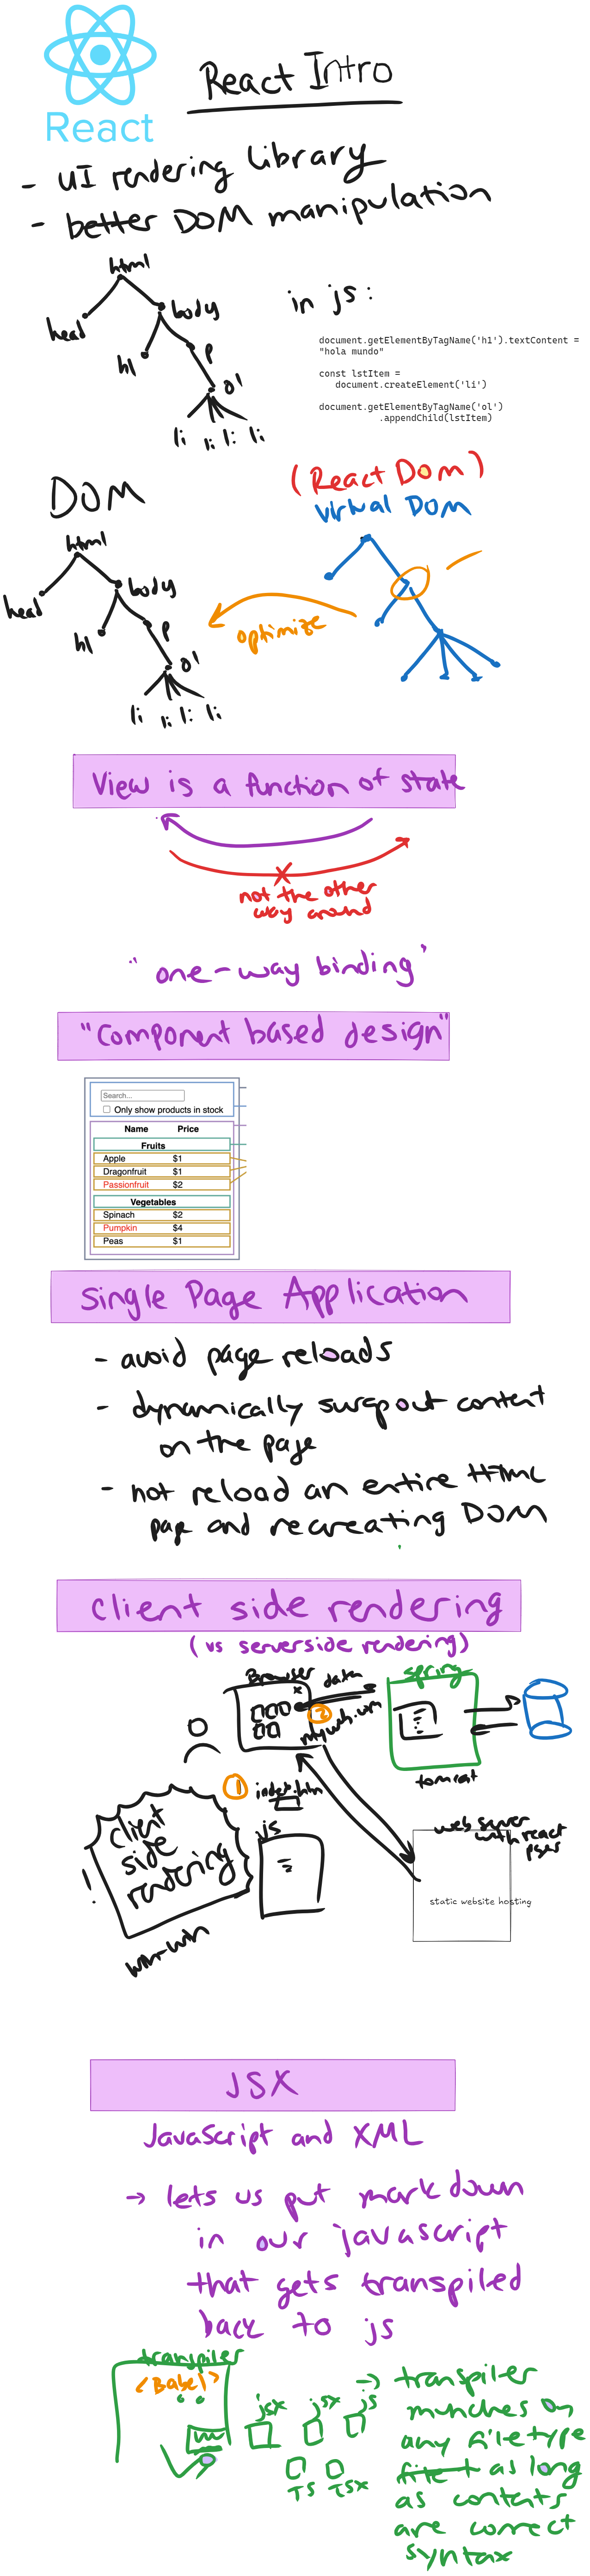 React
React Intro
- UI rendering library
- better DOM manipulation
html
head
body
h1
p
ol
li li li li
in js:
document.getElementByTagName('h1').textContent =
"hola mundo"
const lstItem =
document.createElement('li')
document.getElementByTagName('ol')
.appendChild(lstItem)
DOM
(React Dom)
virtual DOM
html
head
body
h1
p
ol
li li li li
optimize
View is a function of state
not the other
way around
"one-way binding"
"Component based design"
Search...
Only show products in stock
Name Price
Fruits
Apple $1
Dragonfruit $1
Passionfruit $2
Vegetables
Spinach $2
Pumpkin $4
Peas $1
Single Page Application
- avoid page reloads
- dynamically swap out content
on the page
- not reload an entire HTML
page and recreating DOM
client side rendering
(vs serverside rendering)
Browser
data
spring
2
tomcat
1
js
client
side
rendering
!
win-win
web server
with react
static website hosting
JSX
JavaScript and XML
→ lets us put markdown
in our javascript
that gets transpiled
back to js
transpiler
<Babel>
jsx jsx js
TS TSX
→ transpiler
munches on
any filetype
as long
as contents
are correct
syntax